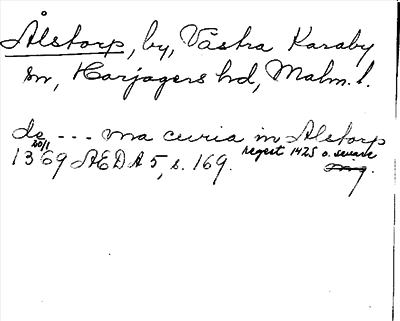 Ålstorp, by, Västra Karaby
sn, Harjagers hd, Malm. l.
de --- ma curia in Alstorp
20/1
1369 ÆDA 5, s. 169. regest 1425 o. senare